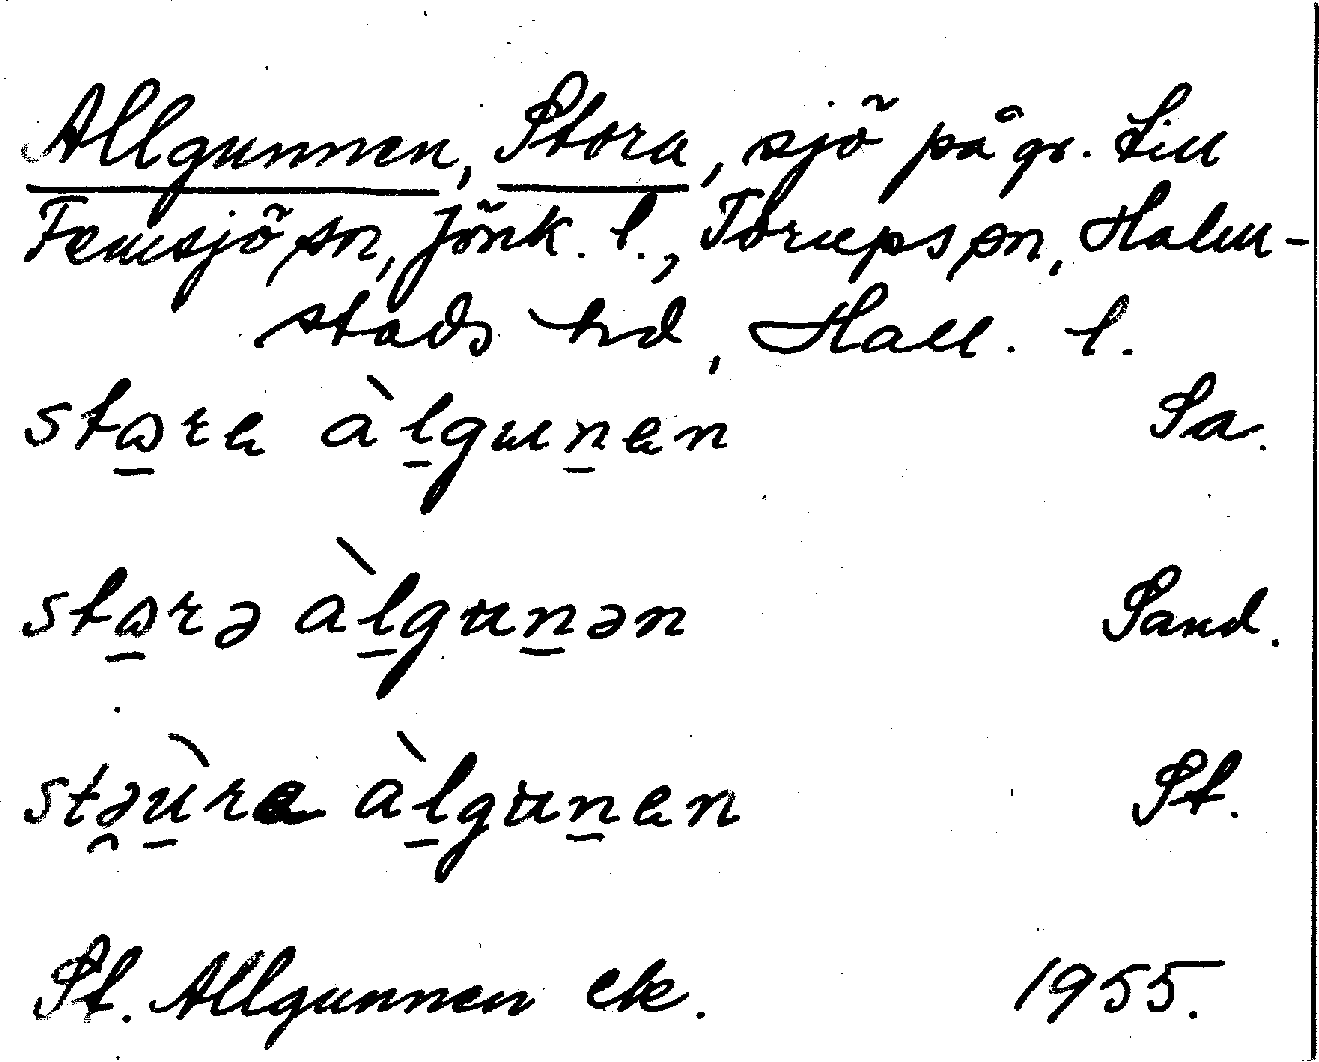 Allgunnen, Stora, sjö på gr. till
Femsjö sn, Jönk. l., Torups sn, Halm-
stads hd, Hall. l.
stora àlgunen Sa.
storə àlgunən Sand.
stəùra àlgunen St.
St. Allgunnen ek. 1955.